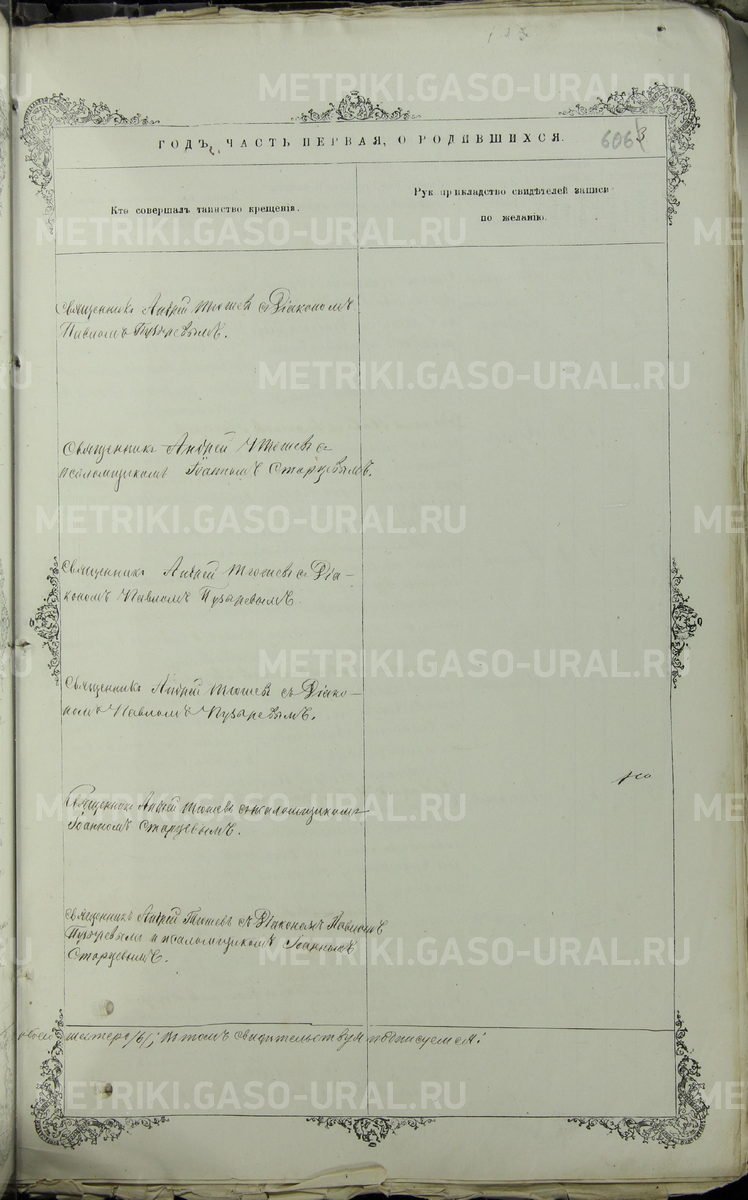 ГОДЪ, ЧАСТЬ ПЕРВАЯ, О РОДИВШИХСЯ.
606
3
Кто совершалъ таинство крещенія.
Рук прикладство свидѣтелей записи
по желанію.
Священникъ Андрей Тюшевъ съ Діакономъ
Павломъ Пузыревымъ.
Священникъ Андрей Тюшевъ съ
псаломщикомъ Іоанномъ Старцевымъ.
Священникъ Андрей Тюшевъ съ Діа-
кономъ Павломъ Пузыревымъ.
Священникъ Андрей Тюшевъ съ Діако-
номъ Павломъ Пузыревымъ.
Священникъ Андрей Тюшевъ съ псаломщикомъ
Іоанномъ Старцевымъ.
Священникъ Андрей Тюшевъ съ Діакономъ Павломъ
Пузыревымъ и псаломщикомъ Іоанномъ
Старцевымъ.
шестеро /6/; въ томъ свидѣтельствуемъ и подписуемся:
METRIKI.GASO-URAL.RU